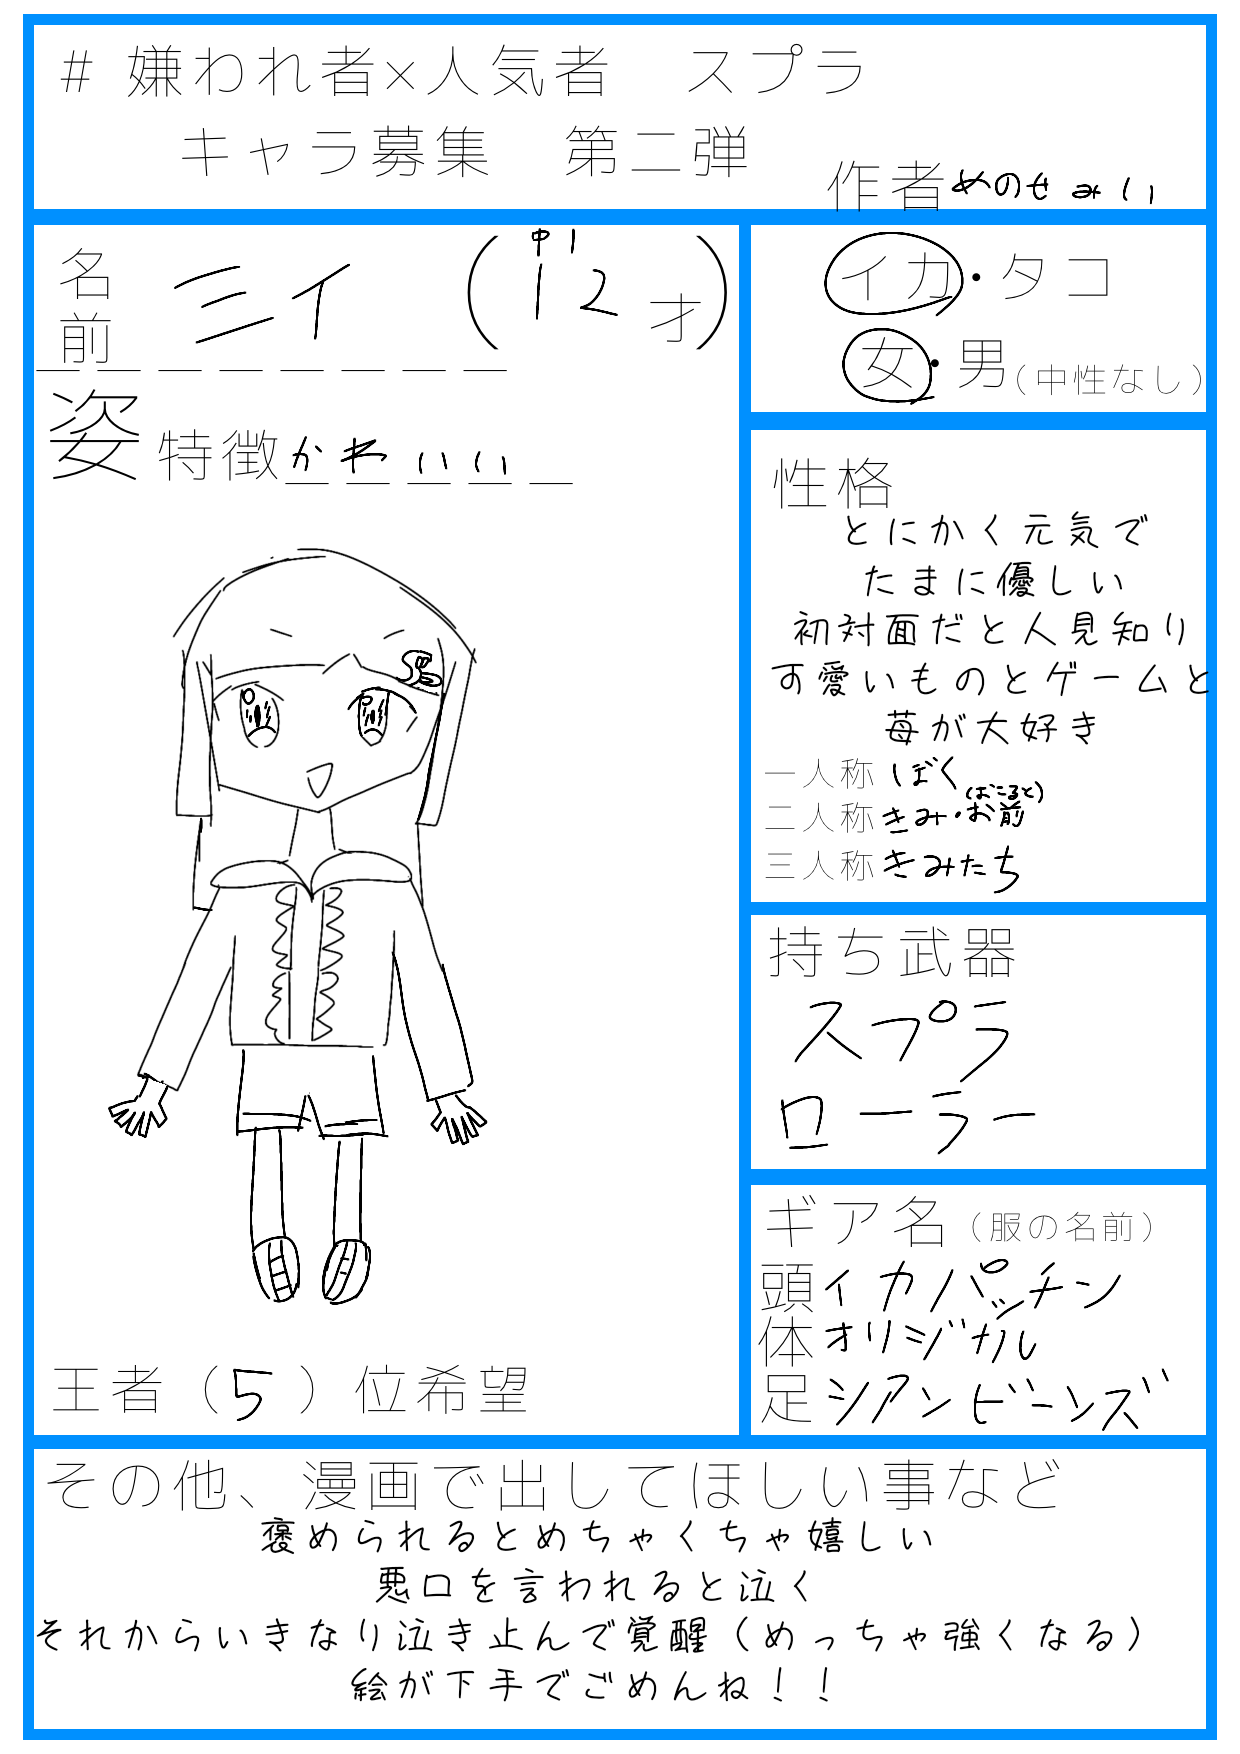 # 嫌われ者×人気者　スプラ
キャラ募集　第二弾
作者めのせみい
名前 ミイ (中1 12才)
姿 特徴かわいい
王者（5）位希望
イカ・タコ
女・男(中性なし)
性格
とにかく元気で
たまに優しい
初対面だと人見知り
可愛いものとゲームと
苺が大好き
一人称 ぼく
二人称 きみ・お前(おこると)
三人称 きみたち
持ち武器
スプラ
ローラー
ギア名（服の名前）
頭イカパッチン
体オリジナル
足シアンビーンズ
その他、漫画で出してほしい事など
褒められるとめちゃくちゃ嬉しい
悪口を言われると泣く
それからいきなり泣き止んで覚醒（めっちゃ強くなる）
絵が下手でごめんね！！